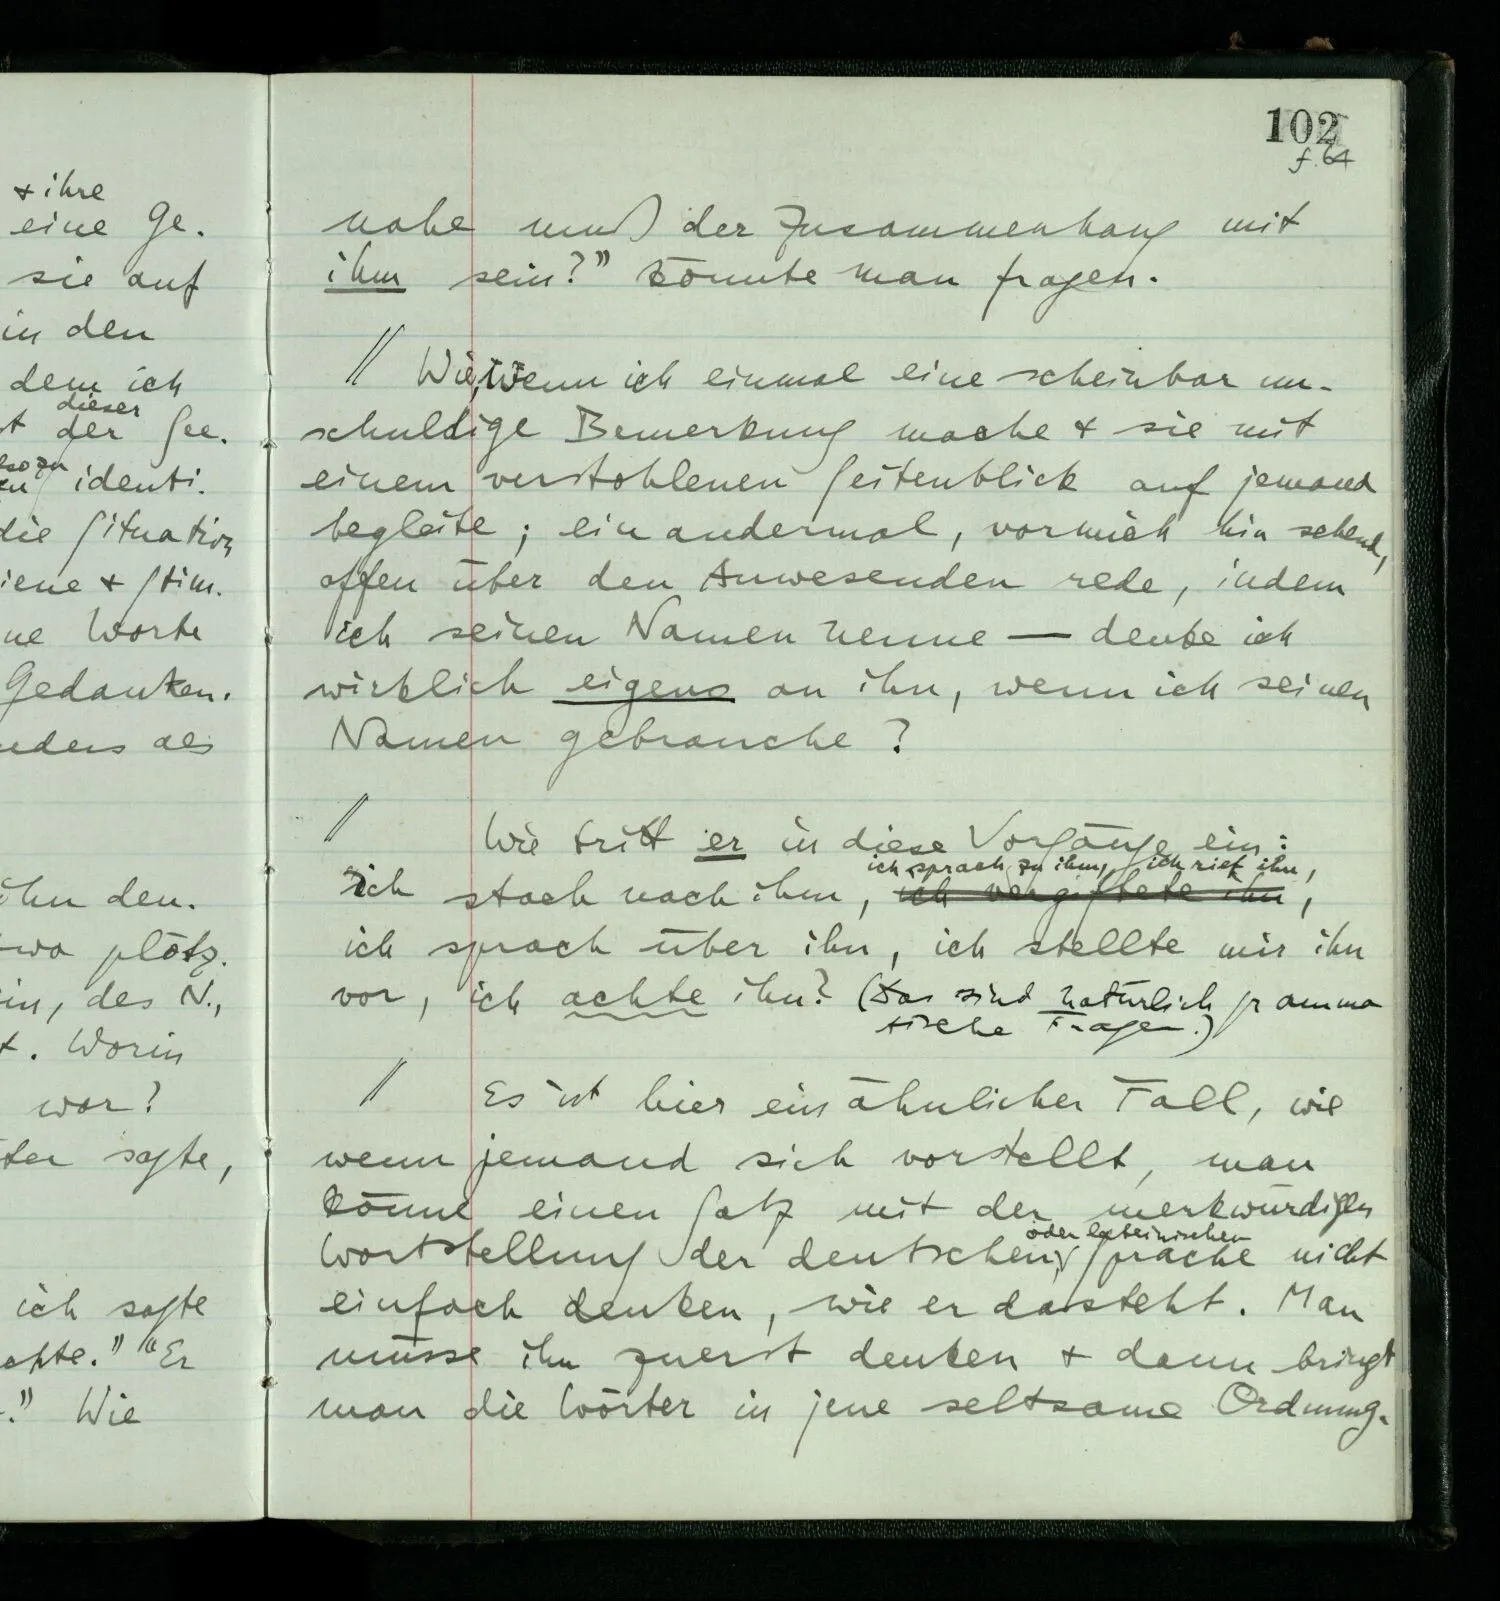 + ihre
eine Ge-
sie auf
in den
dem ich
dieser
t der Ge-
also zu
identi-
die Situation
iene + Stim-
ne Worte
Gedanken.
nders als
ihn den-
wa plötz-
in, des N.,
t. Worin
war?
ter sagte,
ich sagte
achte." "Er
." Wie
102
f. 64
nahe muß der Zusammenhang mit
ihm sein?" könnte man fragen.
// Wie, wenn ich einmal eine scheinbar un-
schuldige Bemerkung mache + sie mit
einem verstohlenen Seitenblick auf jemand
begleite; ein andermal, vor mich hin sehend,
offen über den Anwesenden rede, indem
ich seinen Namen nenne — denke ich
wirklich eigens an ihn, wenn ich seinen
Namen gebrauche?
// Wie tritt er in diese Vorgänge ein:
ich sprach zu ihm, ich rief ihn,
ich stach nach ihm, ich vergiftete ihn,
ich sprach über ihn, ich stellte mir ihn
vor, ich achte ihn? (Das sind natürlich gramma
tische Fragen.)
// Es ist hier ein ähnlicher Fall, wie
wenn jemand sich vorstellt, man
könne einen Satz mit der merkwürdigen
oder lateinischen
Wortstellung der deutschen Sprache nicht
einfach denken, wie er dasteht. Man
müsse ihn zuerst denken + dann bringt
man die Wörter in jene seltsame Ordnung.